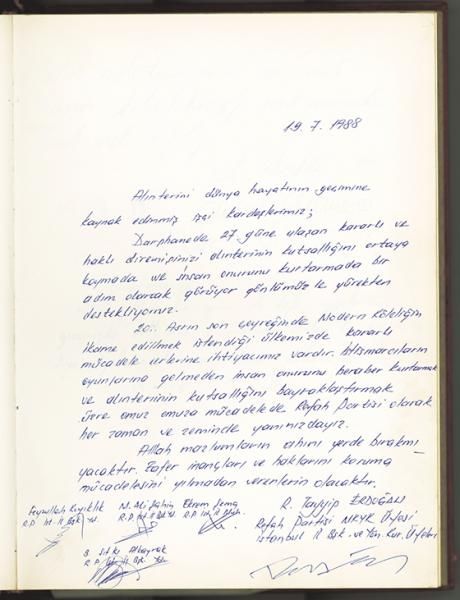 19.7.1988
Alınterini dünya hayatının geçimine
kaynak edinmiş işçi kardeşlerimiz;
Darphanede 27 güne ulaşan kararlı ve
haklı direnişinizi alınterinin kutsallığını ortaya
koymada ve insan onurunu kurtarmada bir
adım olarak görüyor gönlümüzle yürekten
destekliyoruz.
20. Asrın son çeyreğinde Modern Köleliğin
ikame edilmek istendiği ülkemizde kararlı
mücadele erlerine ihtiyacımız vardır. İstismarcıların
oyunlarına gelmeden insan onurunu beraber kurtarmak
ve alınterinin kutsallığını bayraklaştırmak
üzre omuz omuza mücadelede Refah Partisi olarak
her zaman ve zeminde yanınızdayız.
Allah mazlumların ahını yerde bırakmı
yacaktır. Zafer inançları ve haklarını koruma
mücadelesini yılmadan verenlerin olacaktır.
Feyzullah Kıyıklık
R.P. İst. İl Bşk. Yd.
M. Ali Şahin
R.P. İst. İl
Ekrem Şama
R.P. İst. İl
S. Sıtkı Albayrak
R.P. İst. İl Bşk. Yd.
R. Tayyip ERDOĞAN
Refah Partisi MKYK Üyesi
İstanbul İl Bşk. ve Yön. Kur. Üyeleri